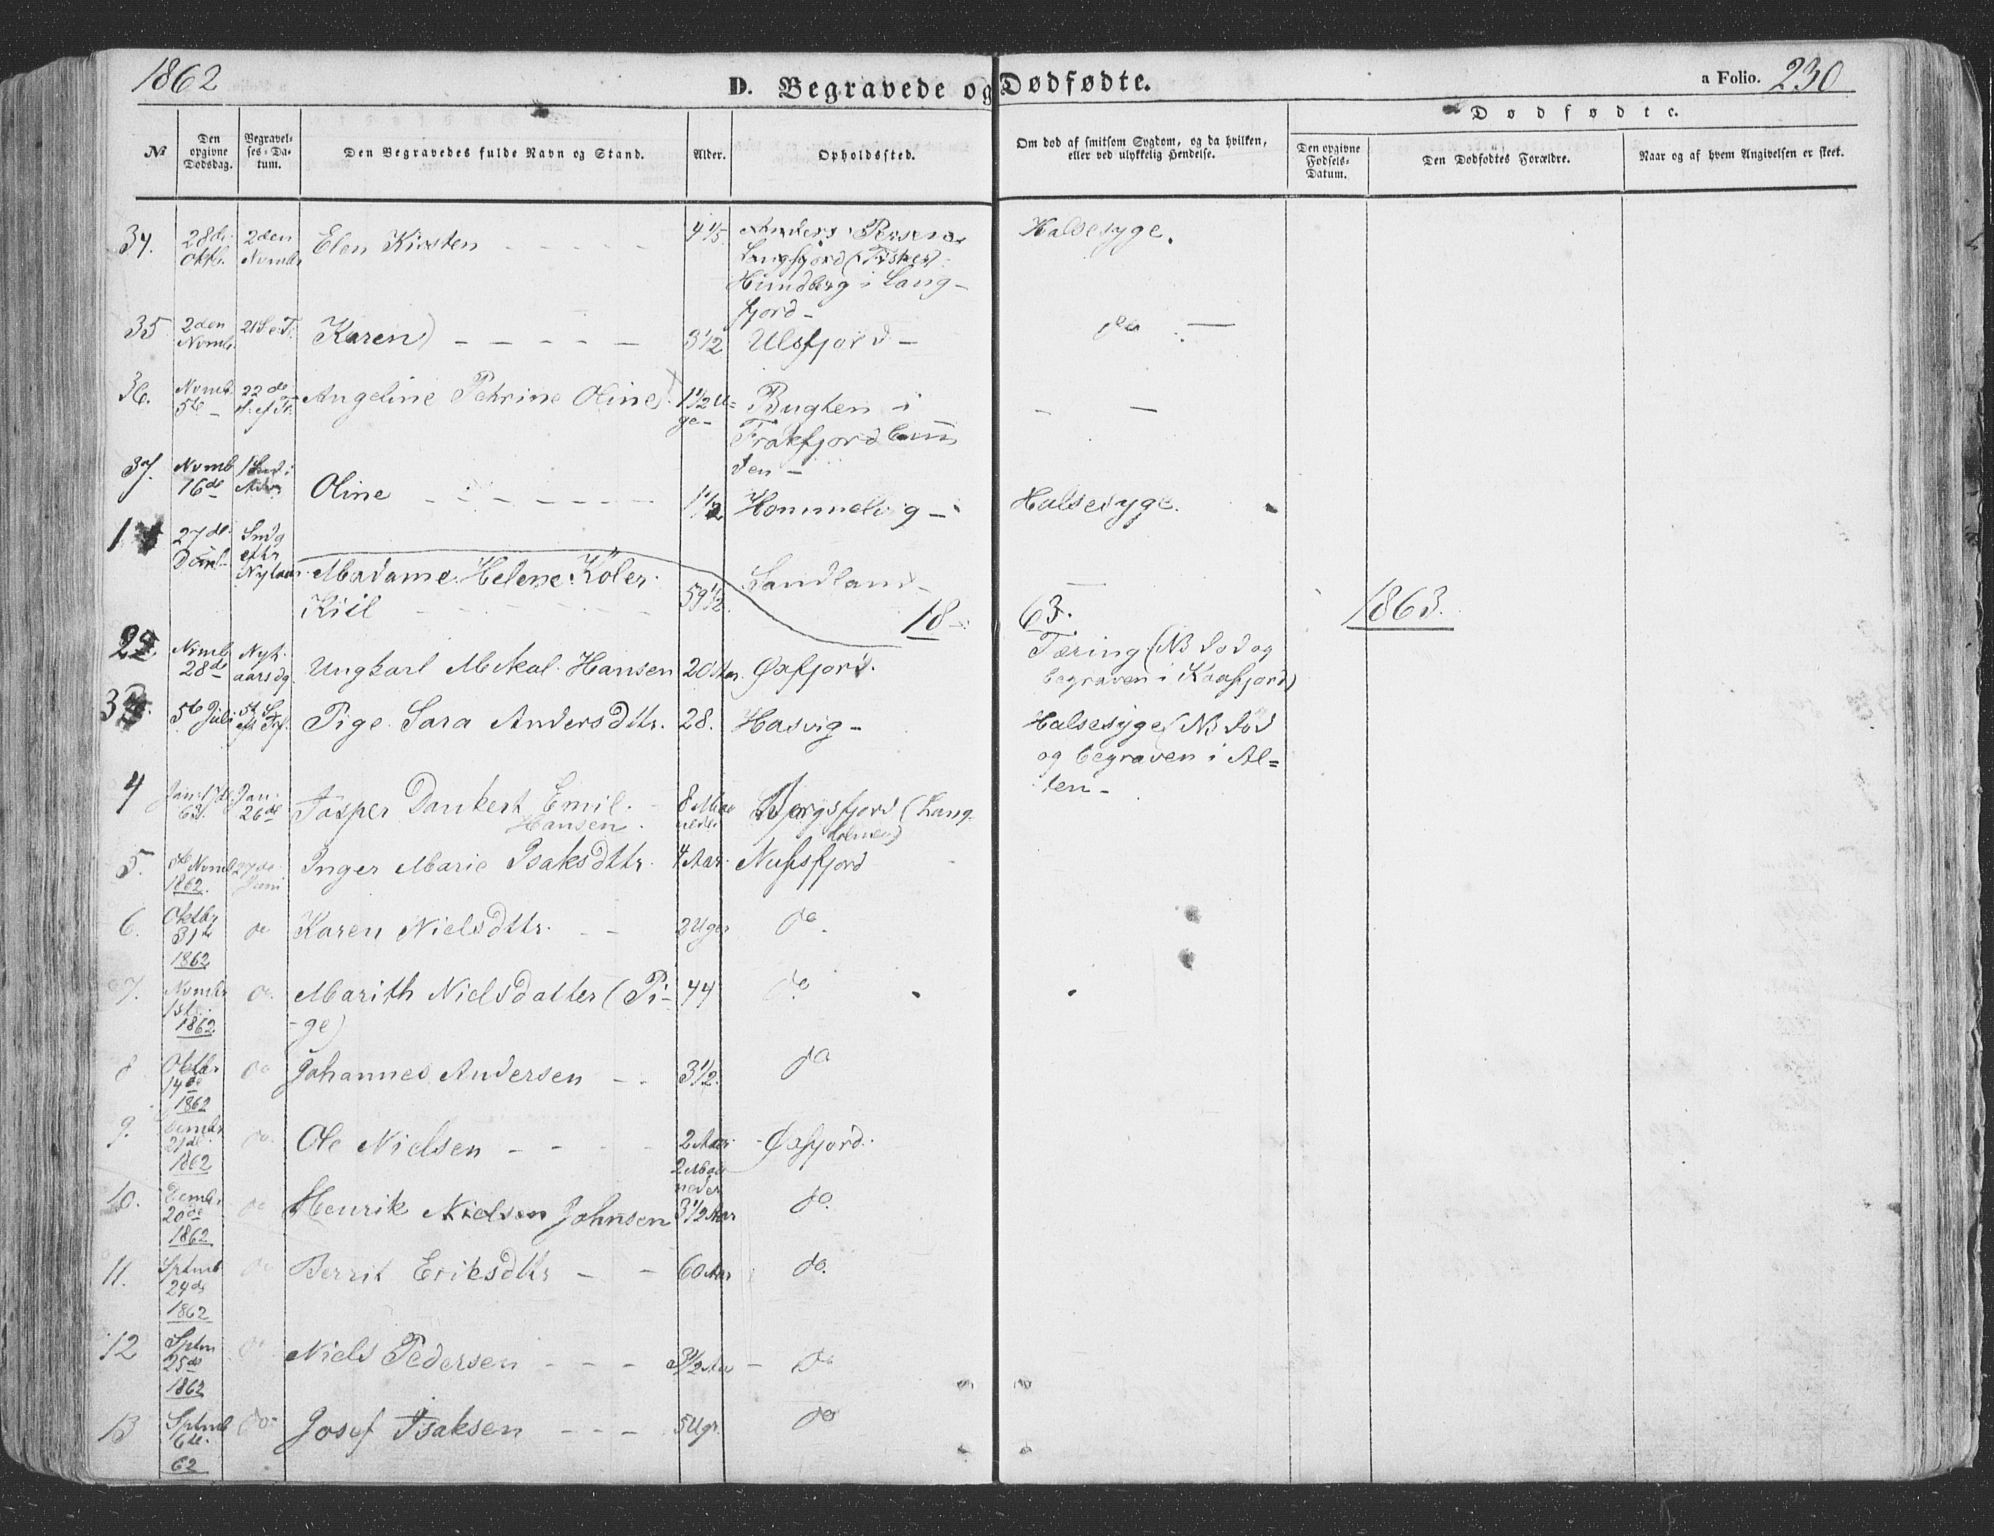 1862
D. Begravede og Dødfødte.
a Folio. 230
Dødfødte.
№
Den opgivne Dødsdag.
Begravelses-Datum.
Den Begravedes fulde Navn og Stand.
Alder.
Opholdssted.
Om død af smitsom Sygdom, og da hvilken,
eller ved ulykkelig Hendelse.
Den opgivne Fødsels-Datum.
Den Dødfødtes Forældre.
Naar og af hvem Angivelsen er skeet.
34. 28de Oktbr. 2den Nvmbr Elen Kirsten 4 1/5 Anders Persen Halsesyge.
Langfjord (Fisker)
Hundberg i Lang-
fjord-
35 2den Nvmbr. 21 S.e.T. Karen 3 1/2 Ulsfjord - do -
36. Nvmb. 5te 22de Angeline Petrine Oline 1 1/2 U=
ge- Bugten i
Frakfjord
den -
37. Nvmb 16de Oline 1 1/2 Hommelvig - Halsesyge.
1 27de Smdg efter Nytaar Madame Helene Köler
Kiil 59 1/2 Sandland -
18 63. 1863.
2 28de Nyt-
aarsdg Ungkarl Mikal Hansen 20 Aar Øxfjord. Tæring (NB død og
begraven i Kaafjord)
3 5te Juli Pige Sara Andersdttr. 28. Hasvig - Halsesyge (NB død
og begraven i Al=
ten -
4 Jan. 26de Jasper Dankert Emil
Hansen. 8 Maa
neder Bergsfjord (Lang
5. Nvmb 1862. 27de Juni Inger Marie Isaksdttr. 4 Aar. Nuſsfjord
6. Oktbr 31te 1862 do Karen Nielsdttr. 2 Uger do.
7. Nvmbr 1ste 1862 do. Marith Nielsdatter (Pi-
-ge) 44 do.
8 Oktbr 14de 1862 do Johannes Andersen 3 1/2. do
9. 21de 1862 do. Ole Nielsen 2 Aar 2 Maa
neder Øxfjord.
10. Demb. 20de 1862 do Henrik Nielsen Johnsen 3 1/2 Aar do.
11. Sptmb 24de 1862 do Berrit Eriksdttr 60 Aar do.
12 Sptm 25de 1862 do Niels Pedersen 3 1/2 Aar do
13 Sptmb 6te. 62 do Josef Isaksen 5 Ugr. do